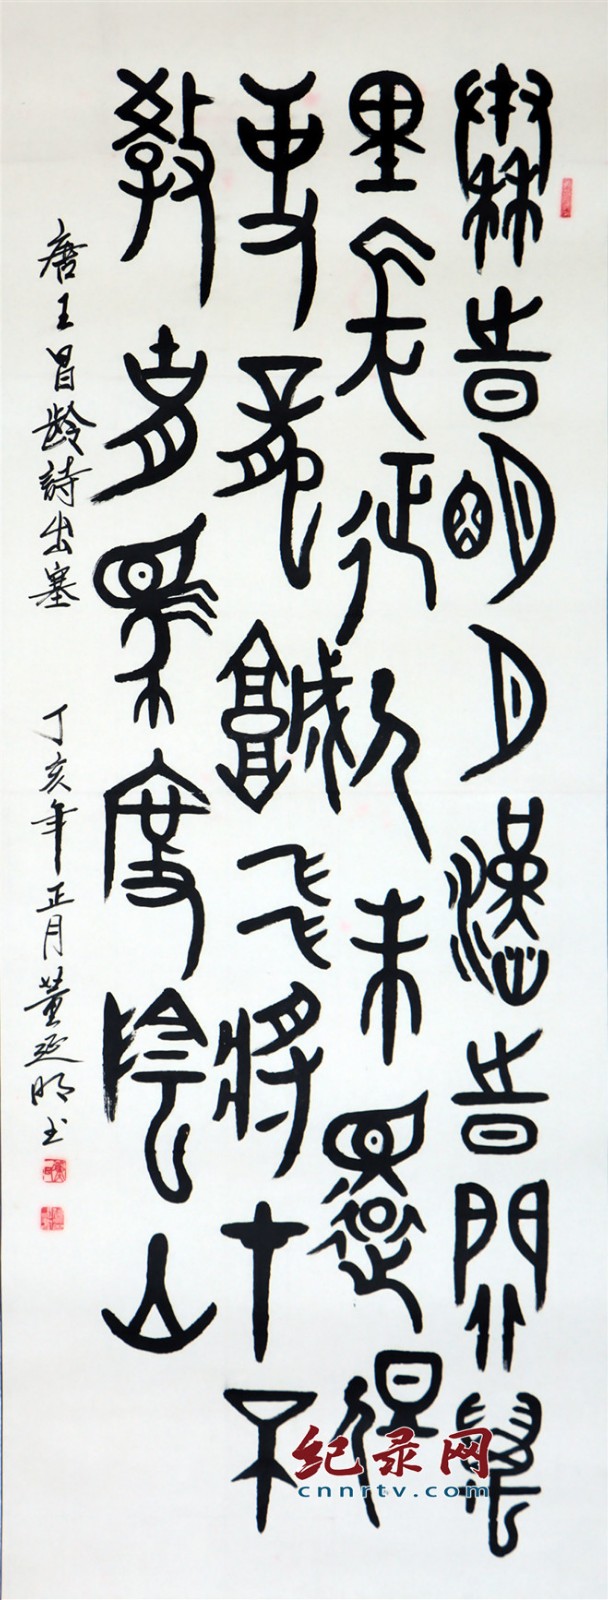 秦旹明月漢旹關萬
里長征人未還但
使龍城飛將在不
教胡馬度陰山
唐王昌齡詩出塞 丁亥年正月董延明书
纪录网
cnnrtv.com